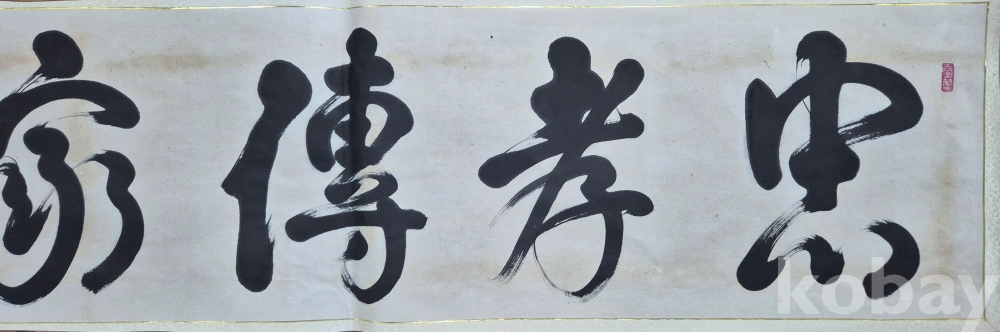 忠孝傳家
kobay